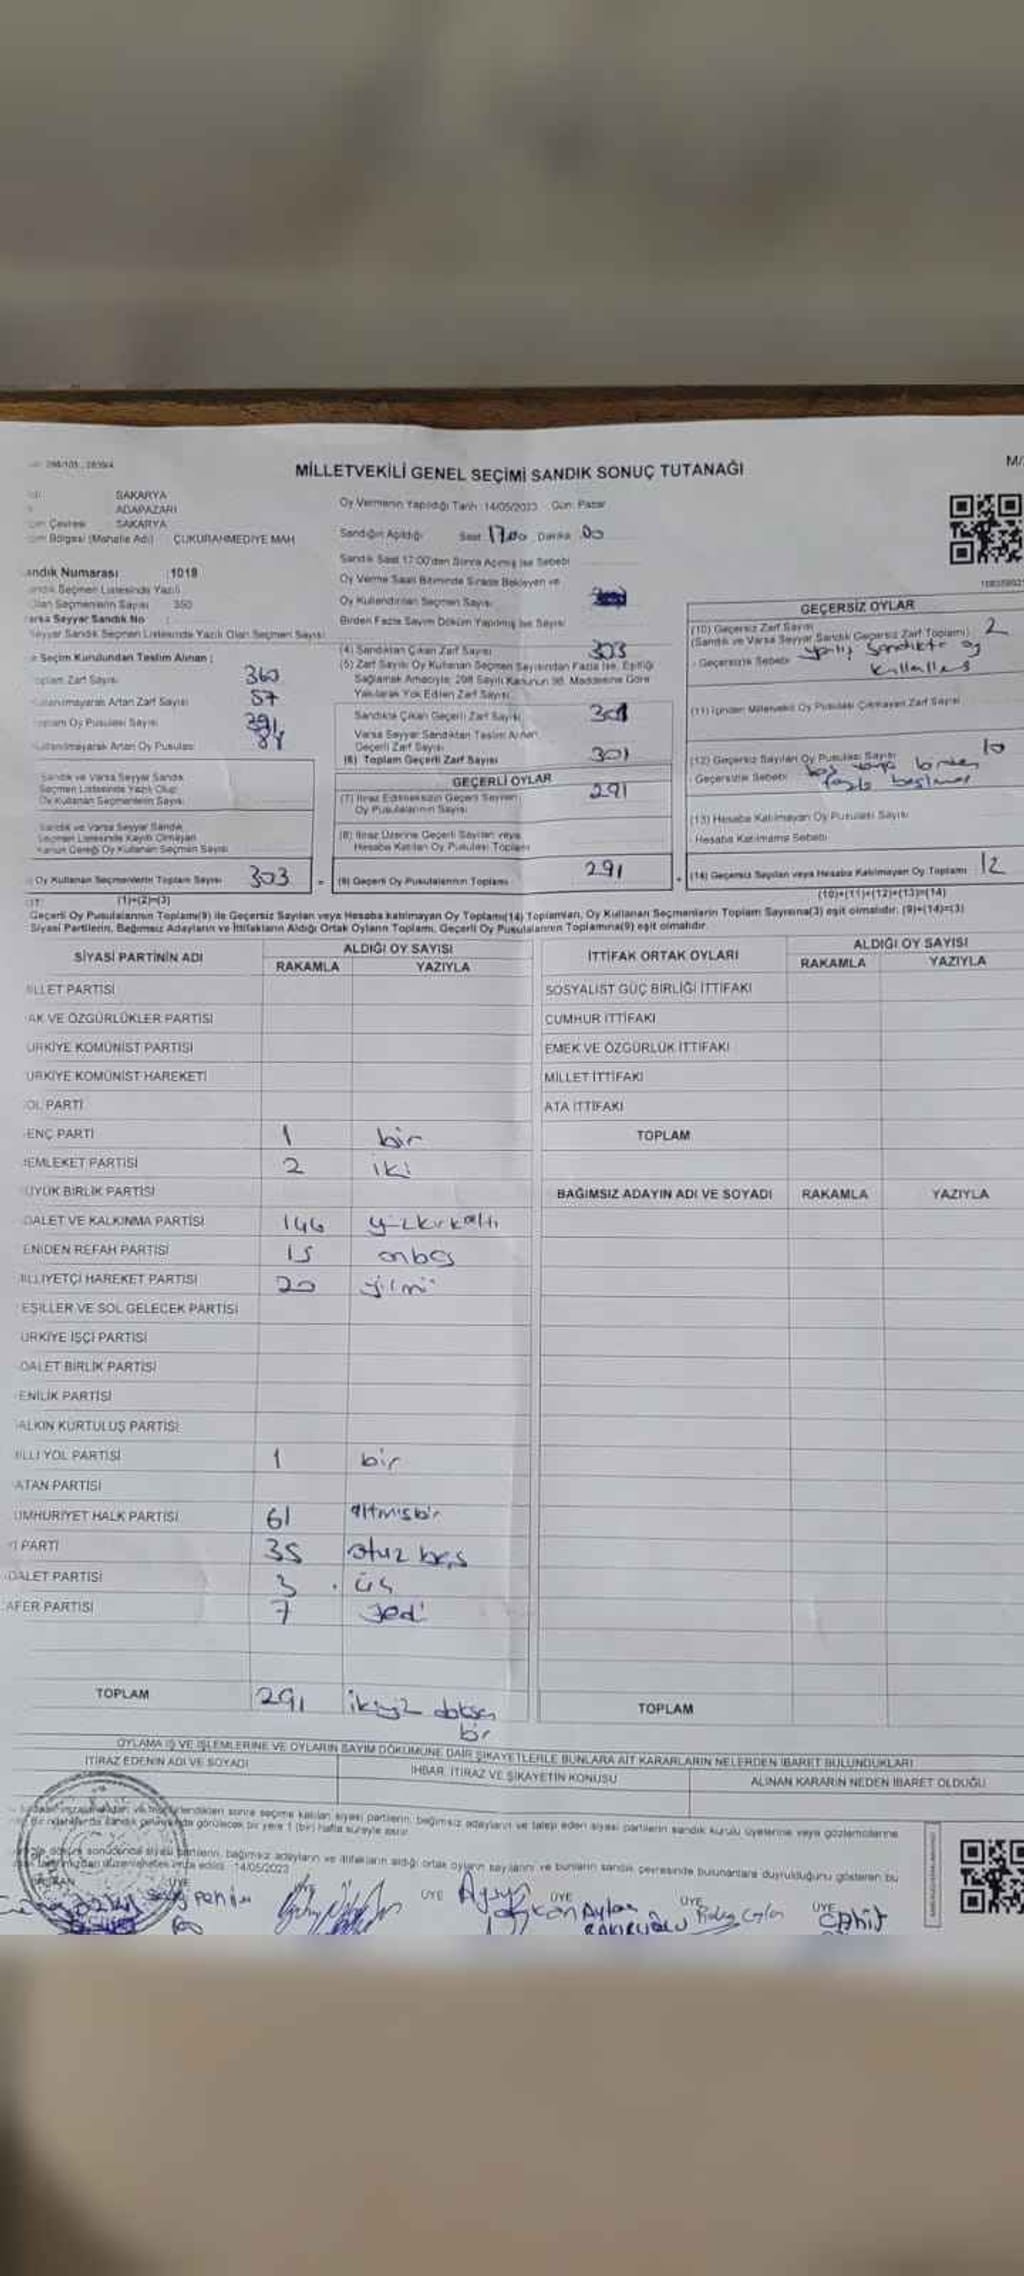 MİLLETVEKİLİ GENEL SEÇİMİ SANDIK SONUÇ TUTANAĞI
SAKARYA
ADAPAZARI
Çevresi SAKARYA
Bölgesi (Mahalle Adı) ÇUKURAHMEDİYE MAH
Oy Vermenin Yapıldığı Tarih :14/05/2023 Gün: Pazar
Sandığın Açıldığı Saat 17.00 Dakika 00
Sandık Saat 17:00'den Sonra Açılmış İse Sebebi
Oy Verme Saati Bitiminde Sırada Bekleyen ve
Oy Kullandırılan Seçmen Sayısı
Birden Fazla Sayım Döküm Yapılmış İse Sayısı
andık Numarası :1018
Seçmen Listesinde Yazılı
Olan Seçmenlerin Sayısı 350
arsa Seyyar Sandık No :
Seyyar Sandık Seçmen Listesinde Yazılı Olan Seçmen Sayısı
Seçim Kurulundan Teslim Alınan ;
oplam Zarf Sayısı 360
Artan Zarf Sayısı 57
oplam Oy Pusulası Sayısı
Artan Oy Pusulası 84
Sandık ve Varsa Seyyar Sandık
Seçmen Listesinde Yazılı Olup
Oy Kullanan Seçmenlerin Sayısı
Sandık ve Varsa Seyyar Sandık
Seçmen Listesinde Kayıtlı Olmayan
Kanun Gereği Oy Kullanan Seçmen Sayısı
Oy Kullanan Seçmenlerin Toplam Sayısı 303
(1)+(2)=(3)
(4) Sandıktan Çıkan Zarf Sayısı 303
(5) Zarf Sayısı Oy Kullanan Seçmen Sayısından Fazla İse, Eşitliği
Sağlamak Amacıyla; 298 Sayılı Kanunun 98. Maddesine Göre
Yakılarak Yok Edilen Zarf Sayısı
Sandıkta Çıkan Geçerli Zarf Sayısı 301
Varsa Seyyar Sandıktan Teslim Alınan
Geçerli Zarf Sayısı
(6) Toplam Geçerli Zarf Sayısı 301
GEÇERLİ OYLAR
(7) İtiraz Edilmeksizin Geçerli Sayılan
Oy Pusulalarının Sayısı 291
(8) İtiraz Üzerine Geçerli Sayılan veya
Hesaba Katılan Oy Pusulası Toplamı
(9) Geçerli Oy Pusulalarının Toplamı 291
GEÇERSİZ OYLAR
(10) Geçersiz Zarf Sayısı 2
(Sandık ve Varsa Seyyar Sandık Geçersiz Zarf Toplamı)
Geçersizlik Sebebi
(11) İçinden Milletvekili Oy Pusulası Çıkmayan Zarf Sayısı
(12) Geçersiz Sayılan Oy Pusulası Sayısı 10
Geçersizlik Sebebi boş veya birden
fazla
(13) Hesaba Katılmayan Oy Pusulası Sayısı
Hesaba Katılmama Sebebi
(14) Geçersiz Sayılan veya Hesaba Katılmayan Oy Toplamı 12
(10)+(11)+(12)+(13)=(14)
Geçerli Oy Pusulalarının Toplamı(9) ile Geçersiz Sayılan veya Hesaba katılmayan Oy Toplamı(14) Toplamları, Oy Kullanan Seçmenlerin Toplam Sayısına(3) eşit olmalıdır. (9)+(14)=(3)
Siyasi Partilerin, Bağımsız Adayların ve İttifakların Aldığı Ortak Oyların Toplamı, Geçerli Oy Pusulalarının Toplamına(9) eşit olmalıdır.
SİYASİ PARTİNİN ADI ALDIĞI OY SAYISI
RAKAMLA YAZIYLA
İLLET PARTİSİ
AK VE ÖZGÜRLÜKLER PARTİSİ
ÜRKİYE KOMÜNİST PARTİSİ
ÜRKİYE KOMÜNİST HAREKETİ
OL PARTİ
ENÇ PARTİ 1 bir
EMLEKET PARTİSİ 2 iki
ÜYÜK BİRLİK PARTİSİ
DALET VE KALKINMA PARTİSİ 146 yüzkırkaltı
ENİDEN REFAH PARTİSİ 15 onbeş
İLLİYETÇİ HAREKET PARTİSİ 20 yirmi
EŞİLLER VE SOL GELECEK PARTİSİ
ÜRKİYE İŞÇİ PARTİSİ
DALET BİRLİK PARTİSİ
ENİLİK PARTİSİ
ALKIN KURTULUŞ PARTİSİ
İLLİ YOL PARTİSİ 1 bir
ATAN PARTİSİ
UMHURİYET HALK PARTİSİ 61 altmışbir
İ PARTİ 35 otuz beş
DALET PARTİSİ 3 üç
AFER PARTİSİ 7 yedi
TOPLAM 291 ikiyüz doksan
bir
İTTİFAK ORTAK OYLARI ALDIĞI OY SAYISI
RAKAMLA YAZIYLA
SOSYALİST GÜÇ BİRLİĞİ İTTİFAKI
CUMHUR İTTİFAKI
EMEK VE ÖZGÜRLÜK İTTİFAKI
MİLLET İTTİFAKI
ATA İTTİFAKI
TOPLAM
BAĞIMSIZ ADAYIN ADI VE SOYADI RAKAMLA YAZIYLA
TOPLAM
OYLAMA İŞ VE İŞLEMLERİNE VE OYLARIN SAYIM DÖKÜMÜNE DAİR ŞİKAYETLERLE BUNLARA AİT KARARLARIN NELERDEN İBARET BULUNDUKLARI
İTİRAZ EDENİN ADI VE SOYADI İHBAR, İTİRAZ VE ŞİKAYETİN KONUSU ALINAN KARARIN NEDEN İBARET OLDUĞU
sonra seçime katılan siyasi partilerin, bağımsız adayların ve talep eden siyasi partilerin sandık kurulu üyelerine veya gözlemcilerine
görülecek bir yere 1 (bir) hafta süreyle asılır.
sonucunda siyasi partilerin, bağımsız adayların ve ittifakların aldığı ortak oyların sayılarını ve bunların sandık çevresinde bulunanlara duyrulduğunu gösteren bu
14/05/2023
ÜYE ÜYE ÜYE ÜYE ÜYE
Cahit